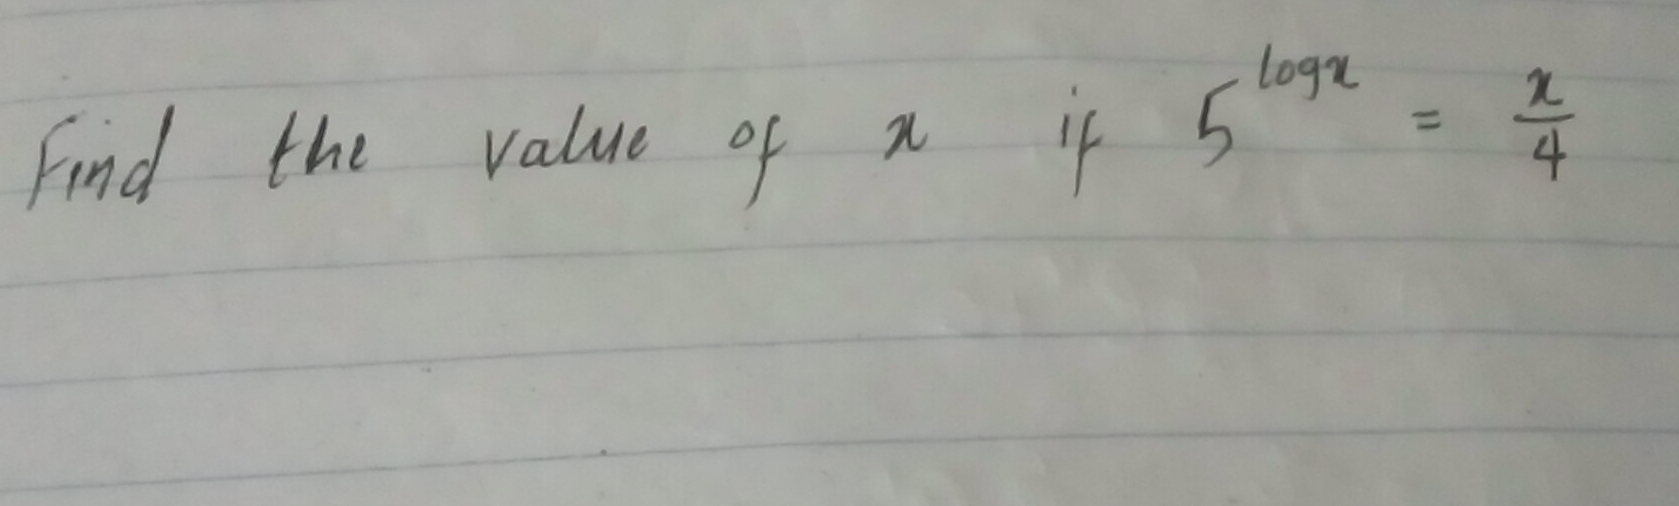 Find the value of x if 5^{log x} = \frac{x}{4}